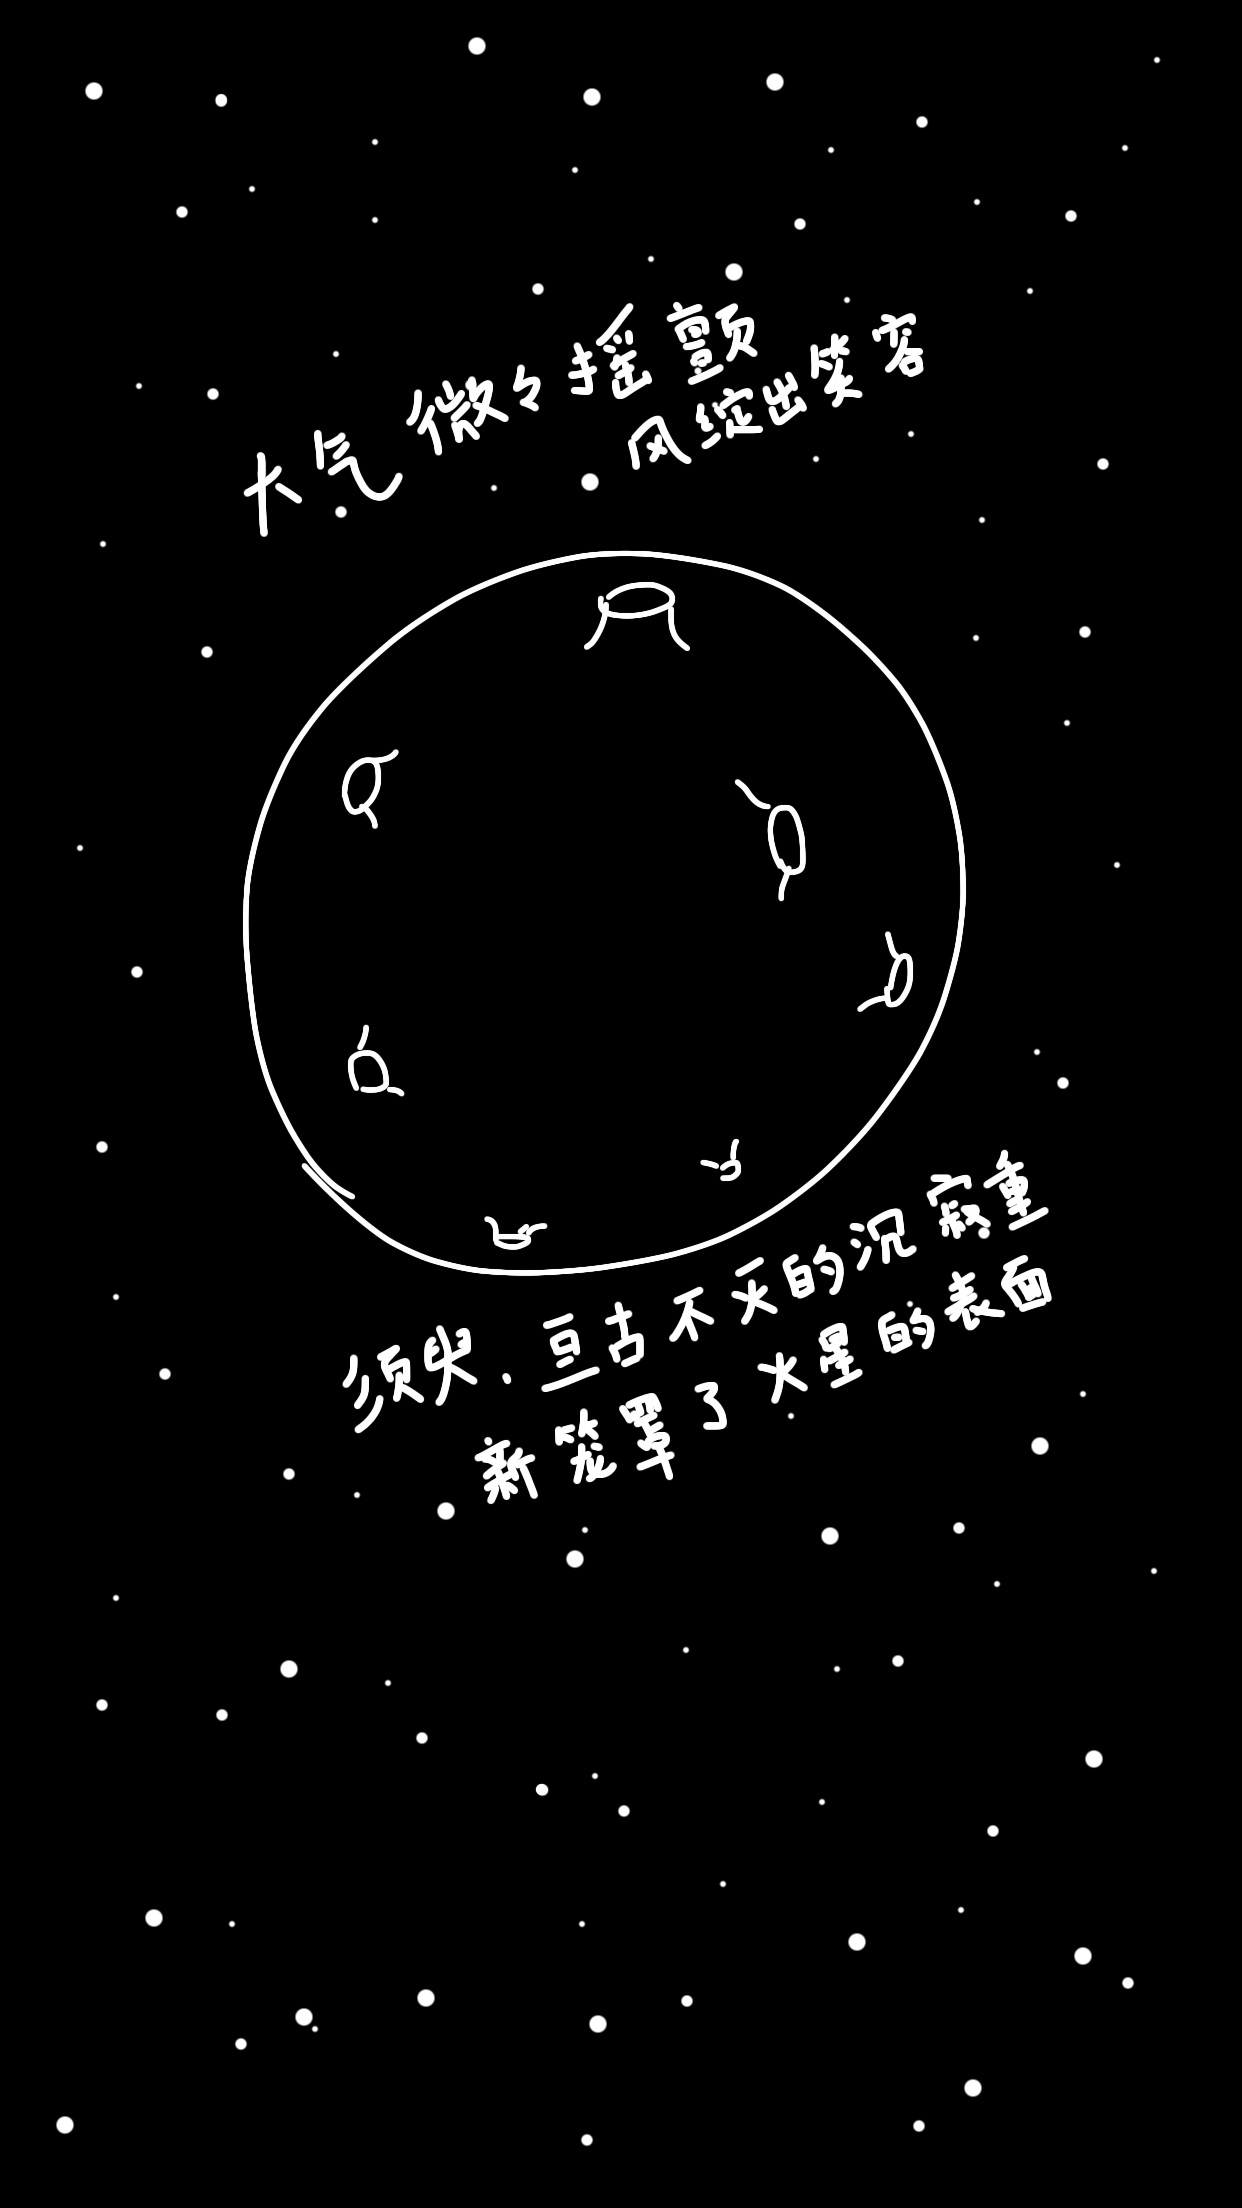 大气微々摇颤
风绽出笑容
须臾.亘古不灭的沉寂重
新笼罩了火星的表面